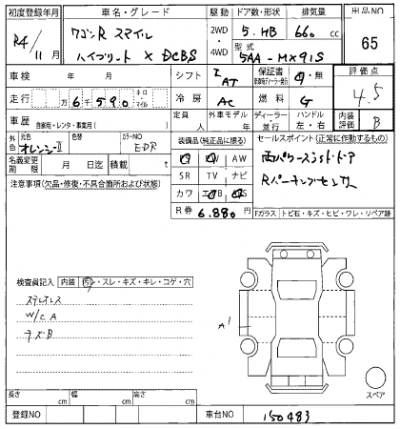 初度登録年月 車名・グレード 駆動 ドア数・形状 排気量 出品NO
R4/11月 ワゴンR スマイル 2WD 4WD 5.HB 660cc 65
ハイブリッド X DCBS 型式 5AA-MX91S
車検 年 月 シフト I AT 保証書 有・無 評価点
走行 万6千590 キロ・マイル 冷房 AC 燃料 G 4.5
車歴 自家用・レンタ・事業用( ) 定員 人 外車モデル 年 ディーラー 並行 ハンドル 左・右 内装評価 B
外色 元色 オレンジⅡ 色替 カラーNO EDR 装備品(純正品に限る) セールスポイント(正常に作動するもの)
名義変更期限 月 日迄 積載 t AW 両パワースライドドア
注意事項(欠品・修復・不具合箇所および状態) SR TV ナビ Rパーキングセンサ
カワ
R券 6,880 円 Fガラス トビ石・キズ・ヒビ・ワレ・リペア跡
検査員記入 内装 汚・スレ・キズ・キレ・コゲ・穴
W/C A
キズB
A1
スペア
長さ cm 幅 cm 高さ cm
登録NO 車台NO 150483